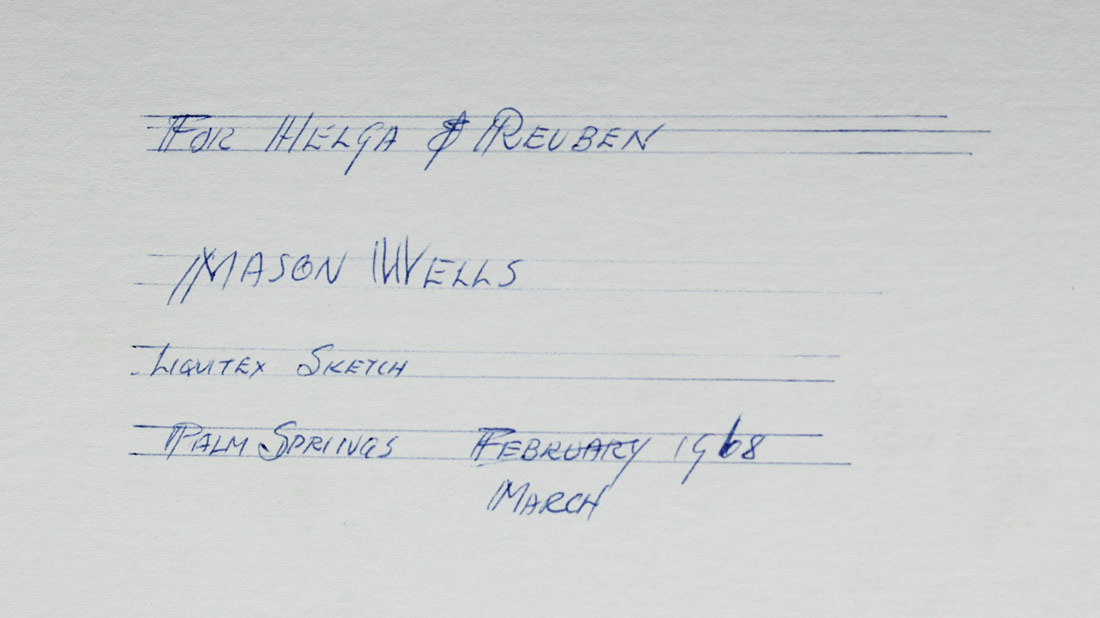 FOR HELGA & REUBEN
MASON WELLS
LIQUITEX SKETCH
PALM SPRINGS FEBRUARY 1968
MARCH